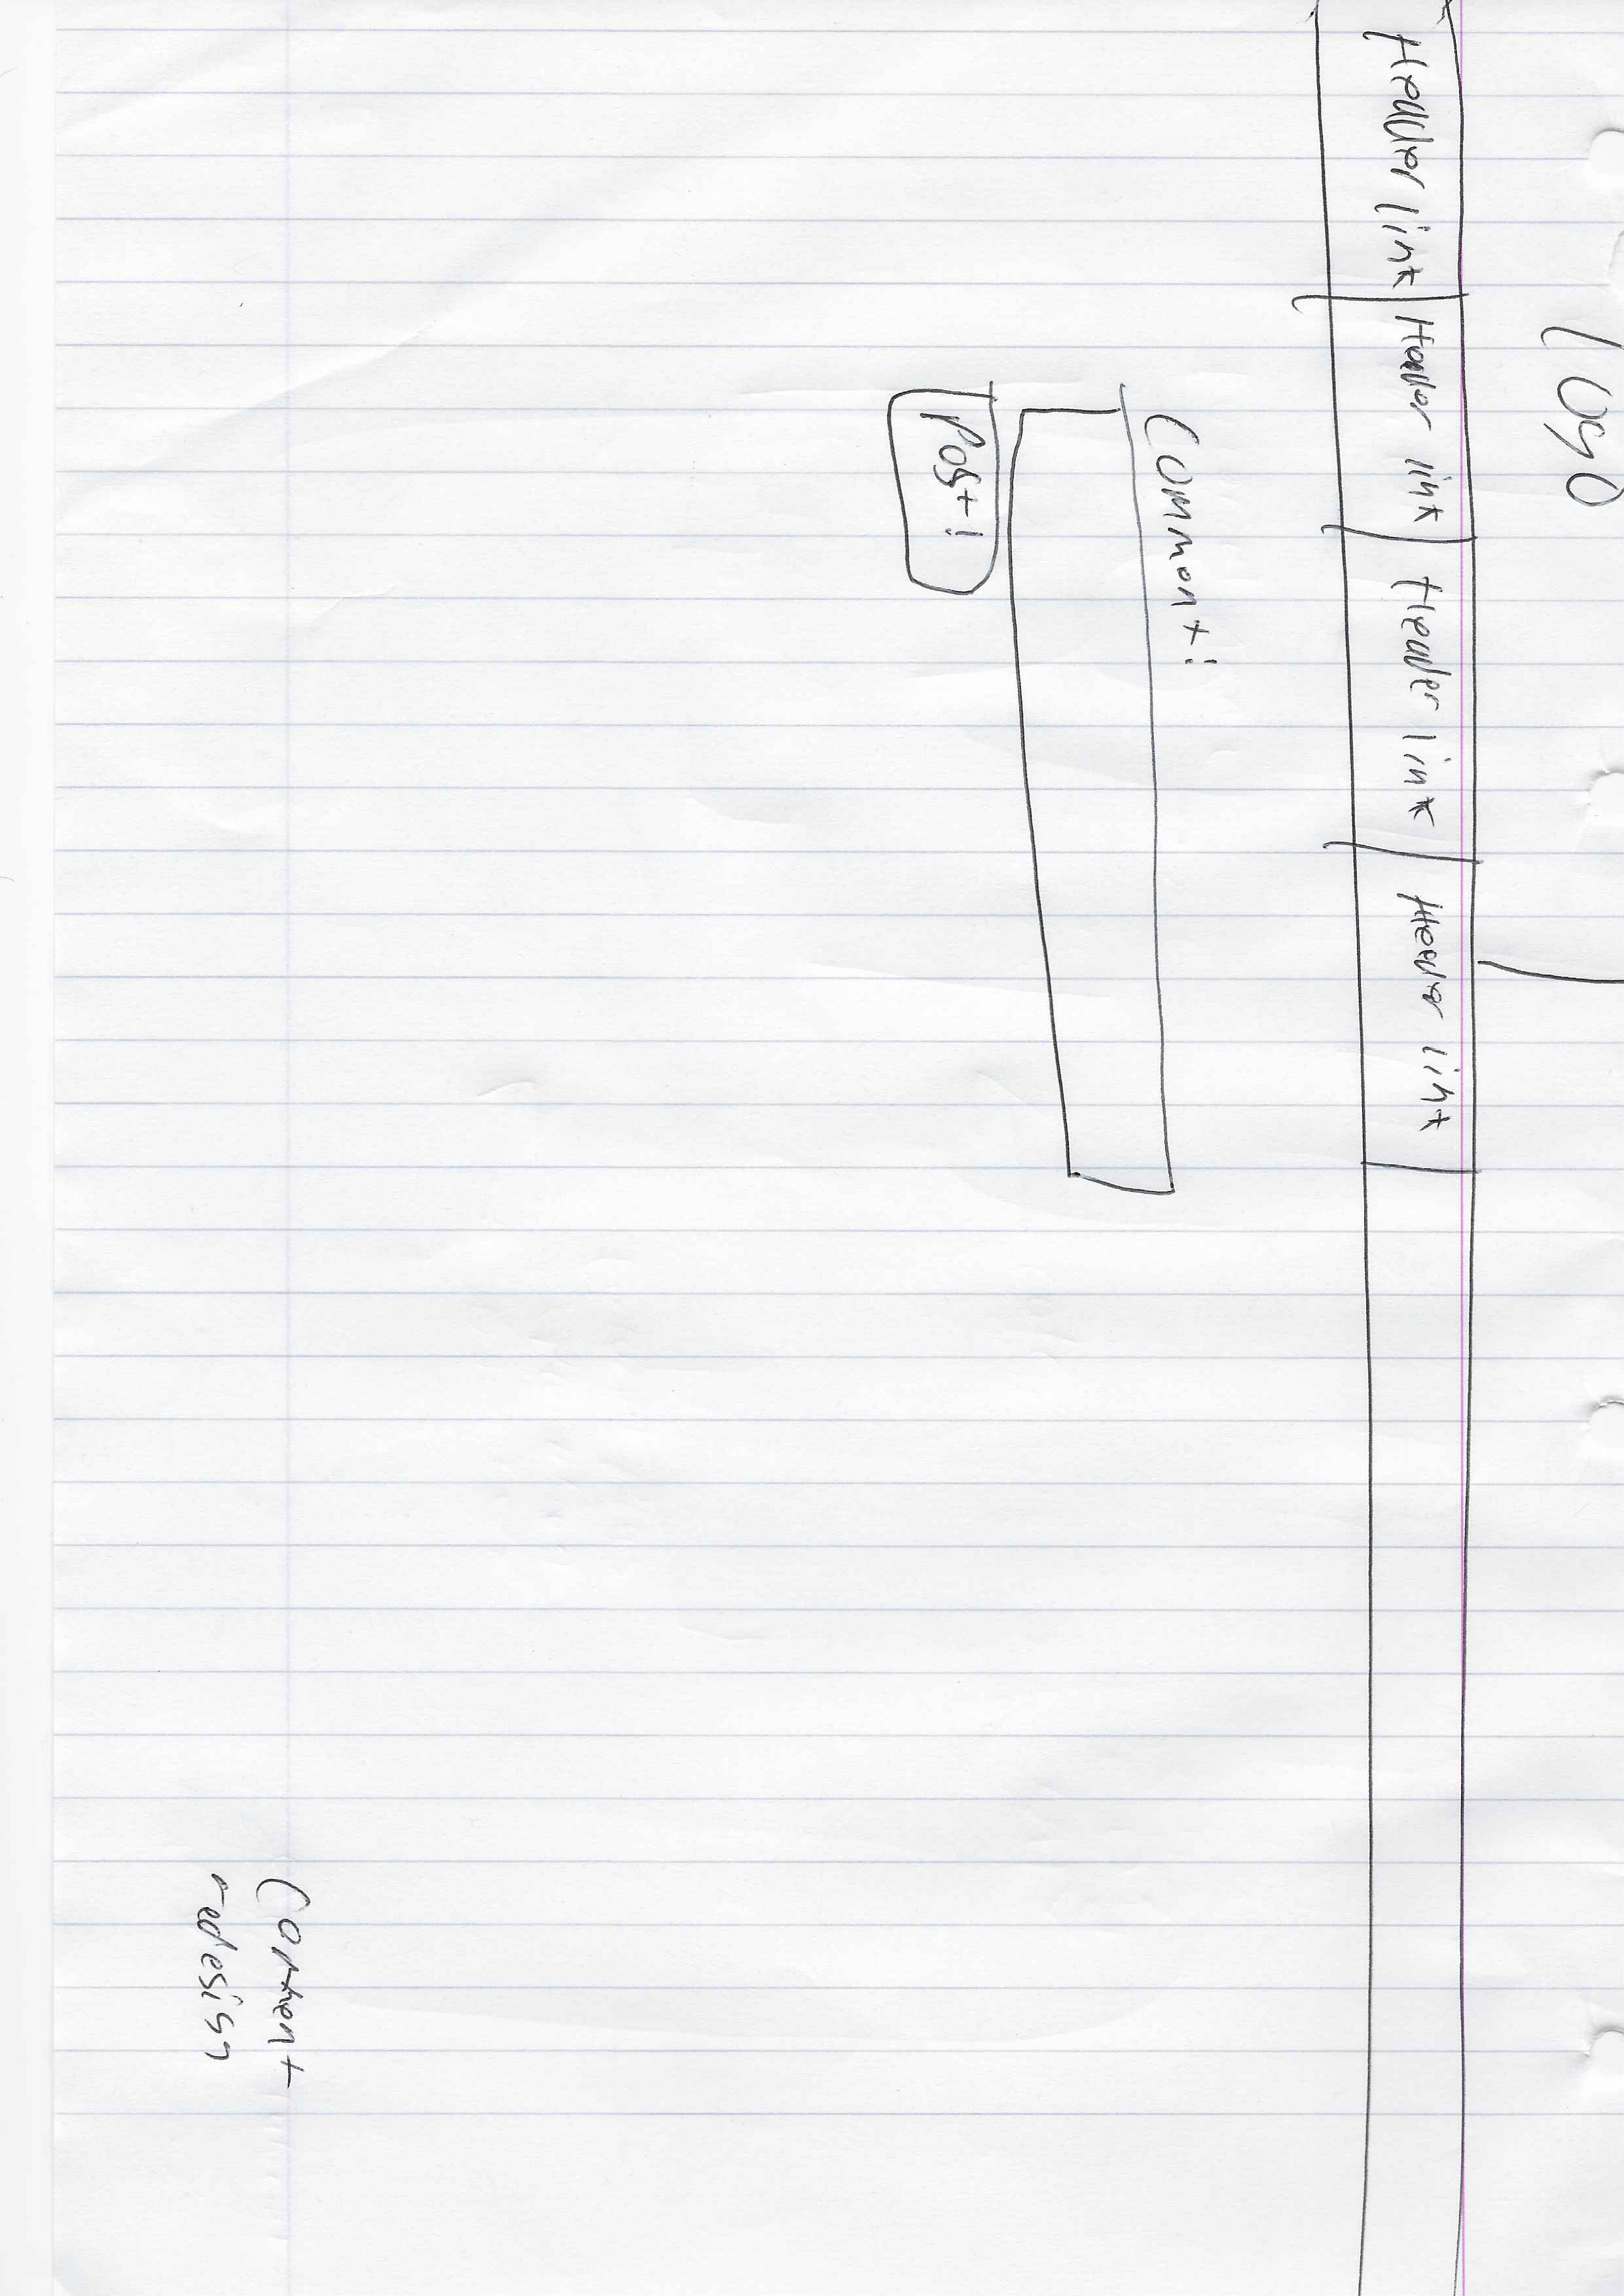 logo
Header link Header link Header link Header link
Comment!
Post!
Comment
redesign